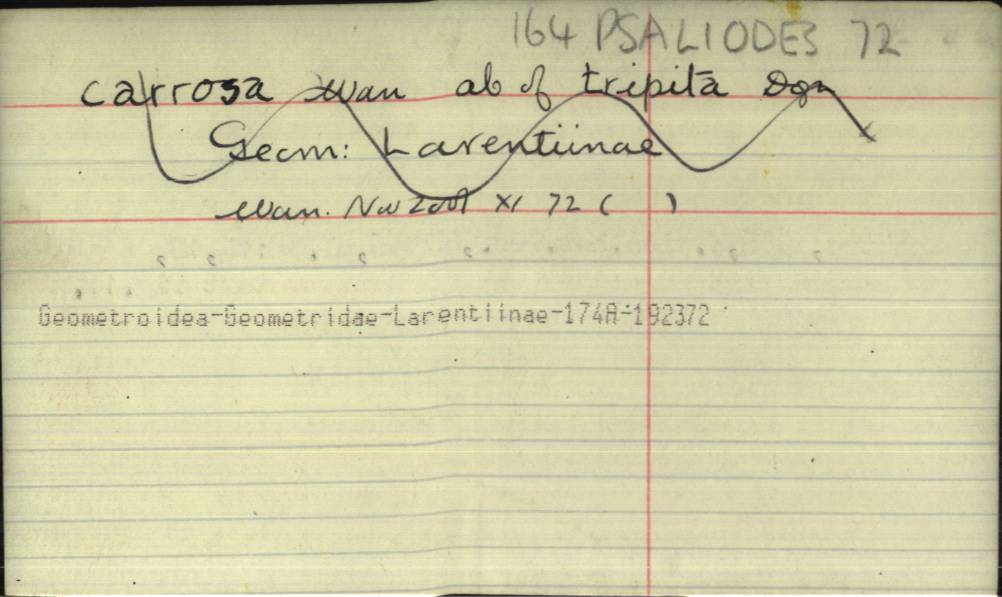 164 PSALIODES 72
carrosa Wan ab of tripita Dgn
Geom: Larentiinae
Wan. Nov Zool XI 72 ( )
Geometroidea-Geometridae-Larentiinae-174A-192372